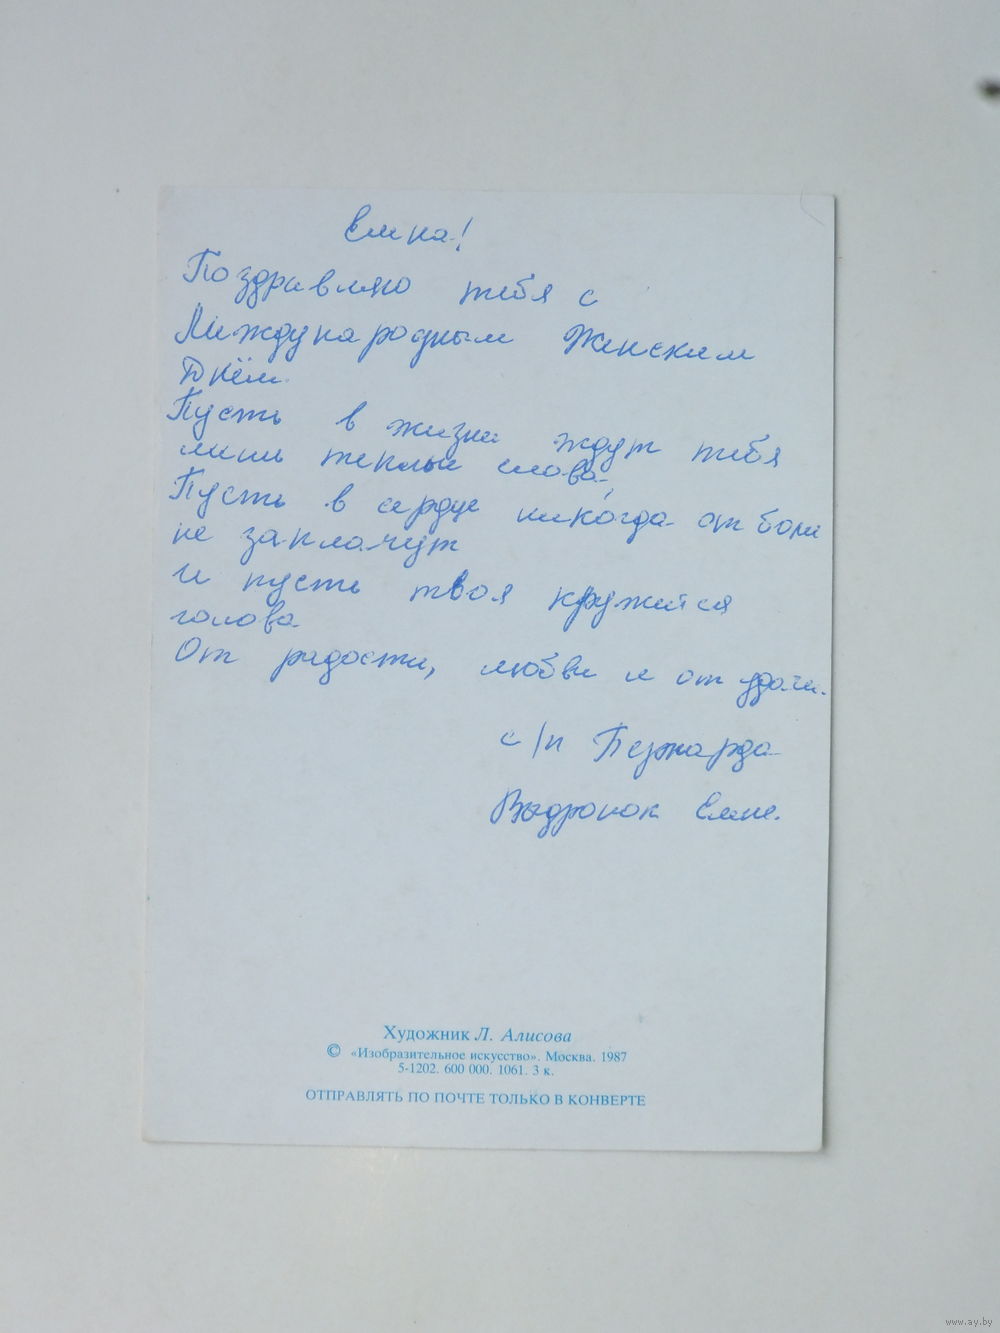 Елена!
Поздравляю тебя с
Международным Женским
Днём.
Пусть в жизни ждут тебя
лишь теплые слова,
Пусть в сердце никогда от боли
не заплачут
И пусть твоя кружится
голова
От радости, любви и от удачи.
с/п
Выдронок Елене.
Художник Л. Алисова
© «Изобразительное искусство». Москва. 1987
5-1202. 600 000. 1061. 3 к.
ОТПРАВЛЯТЬ ПО ПОЧТЕ ТОЛЬКО В КОНВЕРТЕ
www.ay.by